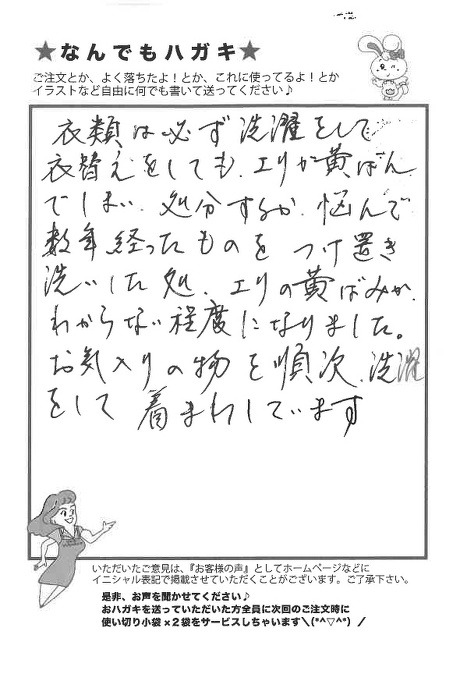 ★なんでもハガキ★
ご注文とか、よく落ちたよ！とか、これに使ってるよ！とか
イラストなど自由に何でも書いて送ってください♪
衣類は必ず洗濯をして
衣替えをしても、エリが黄ばん
でしまい、処分するか、悩んで
数年経ったものを つけ置き
洗いした処、エリの黄ばみが、
わからない程度になりました。
お気入りの物を順次、洗濯
をして着まわしています
いただいたご意見は、『お客様の声』としてホームページなどに
イニシャル表記で掲載させていただくことがございます。ご了承下さい。
是非、お声を聞かせてください♪
おハガキを送っていただいた方全員に次回のご注文時に
使い切り小袋×2袋をサービスしちゃいます＼(*^▽^*)／